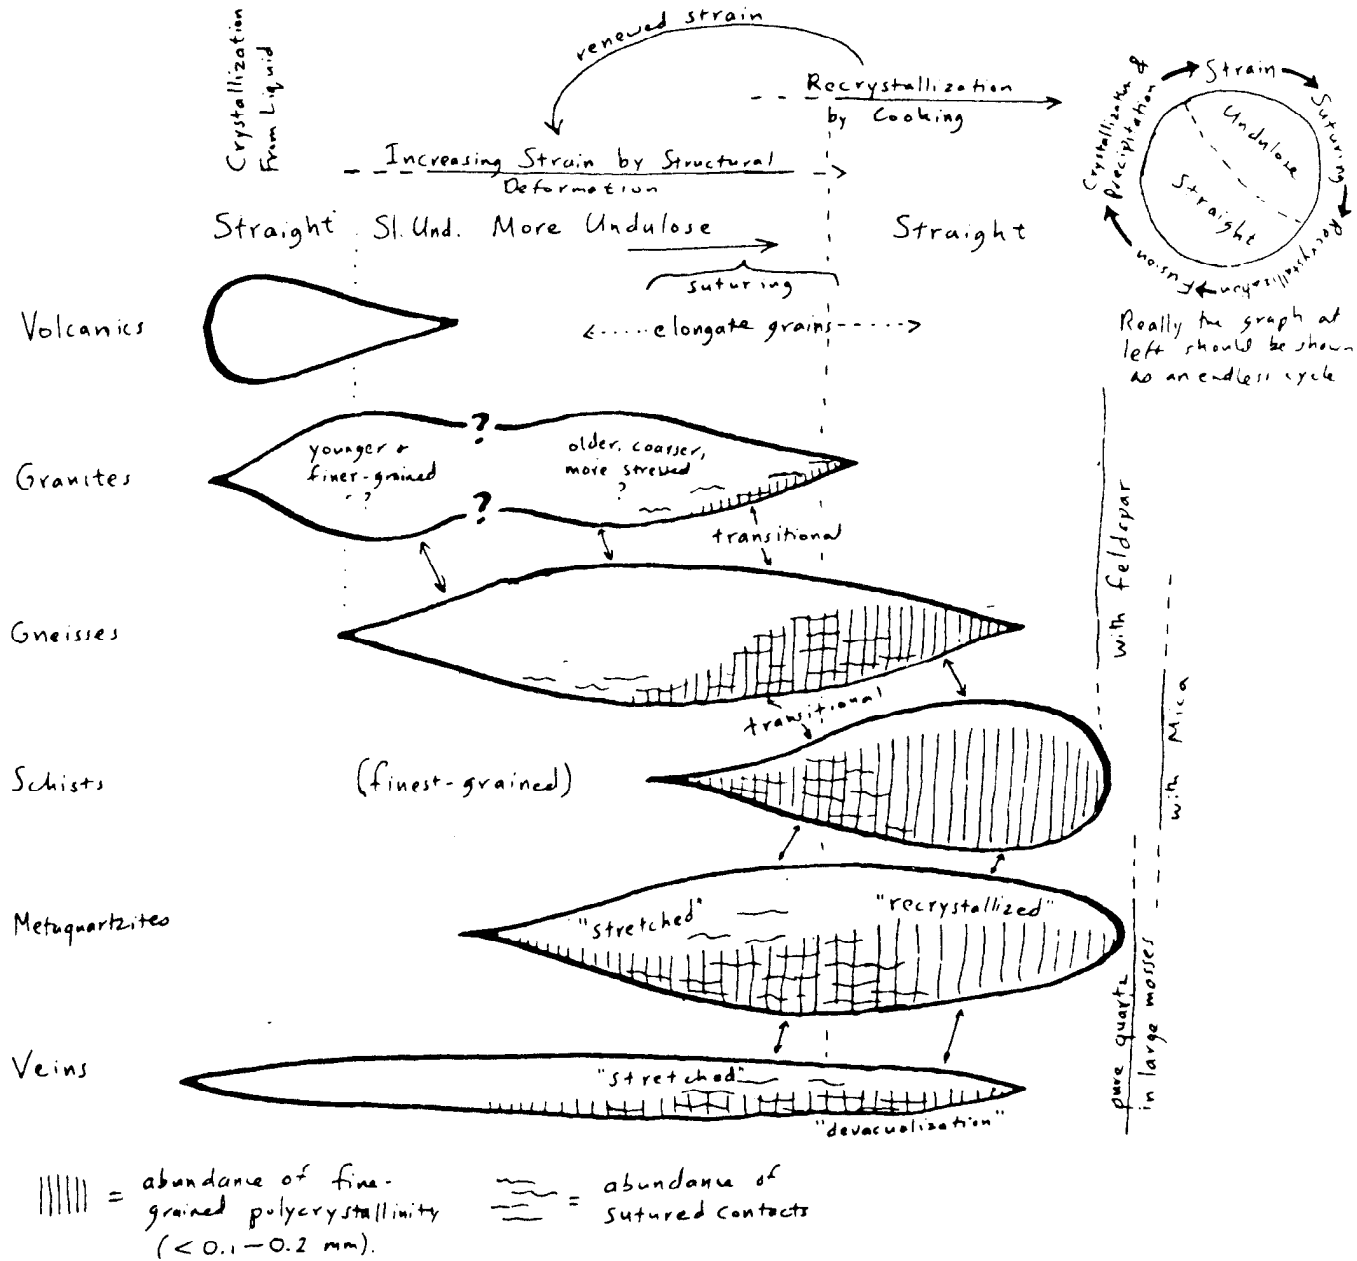 renewed strain
Crystallization
From Liquid
Recrystallization
by Cooking
Increasing Strain by Structural
Deformation
Straight Sl. Und. More Undulose Straight
suturing
elongate grains
Crystallization &
Precipitation
Strain
Suturing
Recrystallization
Fusion
Undulose
Straight
Really the graph at
left should be shown
as an endless cycle
Volcanics
Granites
younger &
finer-grained
?
?
?
older, coarser,
more stressed
?
transitional
with feldspar
Gneisses
transitional
with Mica
Schists
(finest-grained)
Metaquartzites
"stretched"
"recrystallized"
pure quartz
in large masses
Veins
"stretched"
"devacuolization"
= abundance of fine-
grained polycrystallinity
(< 0.1 – 0.2 mm).
= abundance of
sutured contacts